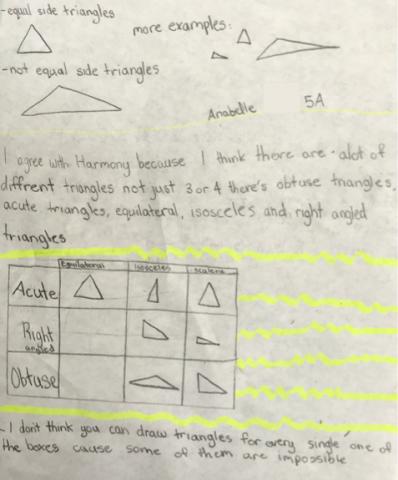 -equal side triangles
more examples:
-not equal side triangles
Anabelle 5A
I agree with Harmony because I think there are alot of
diffrent triangles not just 3 or 4 there's obtuse triangles,
acute triangles, equilateral, isosceles and right angled
triangles
Equilateral isosceles scalene
Acute
Right
angled
Obtuse
- I don't think you can draw triangles for every single one of
the boxes cause some of them are impossible